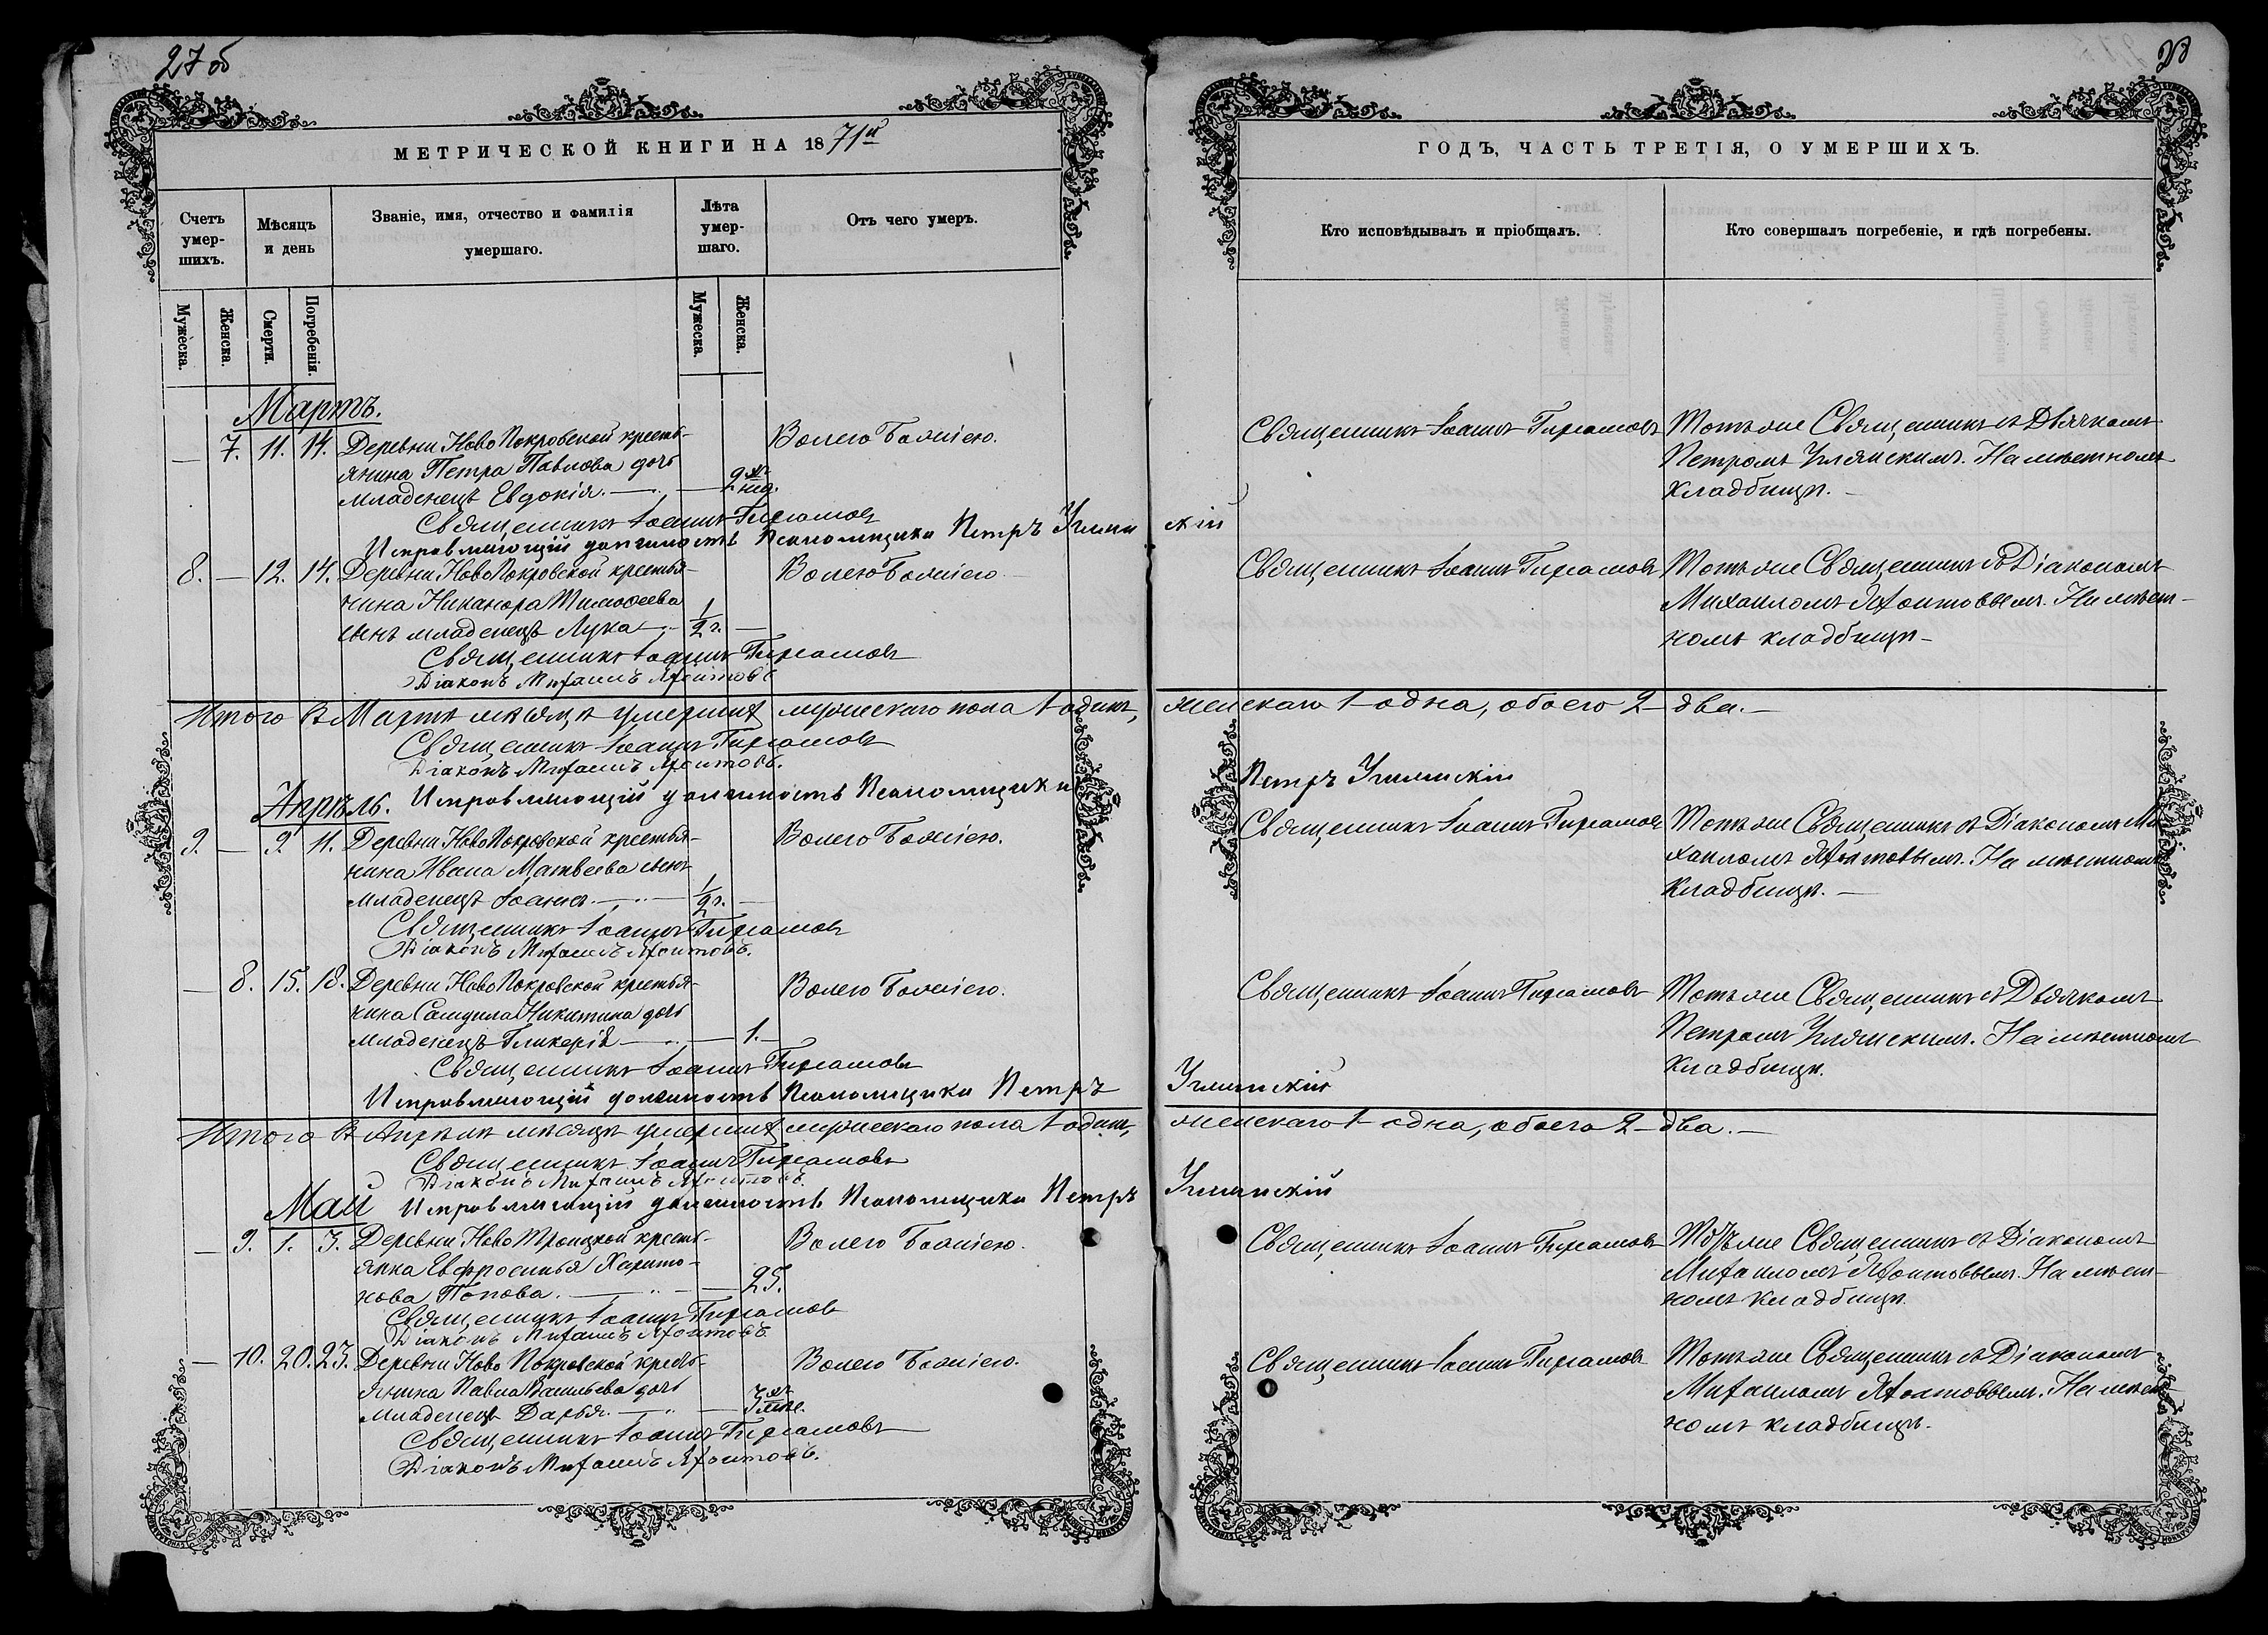 27 об
28
МЕТРИЧЕСКОЙ КНИГИ НА 1871й
ГОДЪ, ЧАСТЬ ТРЕТІЯ, О УМЕРШИХЪ.
Счетъ умер-шихъ.
Мѣсяцъ и день
Званіе, имя, отчество и фамилія умершаго.
Лѣта умер-шаго.
Отъ чего умеръ.
Кто исповѣдывалъ и пріобщалъ.
Кто совершалъ погребеніе, и гдѣ погребены.
Мужеска.
Женска.
Смерти.
Погребенія.
Мужеска.
Женска.
Мартъ.
— 7. 11. 14. Деревни Ново Покровской кресть-
янина Петра Павлова дочь
младенецъ Евдокія. — 2 нед.
Волею Божіею.
Священникъ Іоаннъ
Тотъ же Священникъ съ Дьячкомъ
Петромъ Углянскимъ. На мѣстномъ
кладбищѣ. —
Священникъ Іоаннъ
Исправляющій должность Псаломщика Петръ Углянскій
8. — 12. 14. Деревни Ново Покровской крестья-
нина Никанора Тимоѳеева
сынъ младенецъ Лука — 1/2 г. —
Волею Божіею
Священникъ Іоаннъ
Тотъ же Священникъ съ Діакономъ
Михаиломъ На мѣст-
номъ кладбищѣ —
Священникъ Іоаннъ
Діаконъ Михаилъ
Итого въ Мартѣ мѣсяцѣ умершихъ мужескаго пола 1 одинъ, женскаго 1 одна, обоего 2 два. —
Священникъ Іоаннъ
Діаконъ Михаилъ
Исправляющій должность Псаломщика Петръ Углянскій
Апрѣль.
9. — 9 11. Деревни Ново Покровской крестья-
нина Ивана Матвеева сынъ
младенецъ Іоаннъ. — 1/2 г. —
Волею Божіею.
Священникъ Іоаннъ
Тотъ же Священникъ съ Діакономъ Ми-
хаиломъ На мѣстномъ
кладбищѣ. —
Священникъ Іоаннъ
Діаконъ Михаилъ
— 8. 15. 18. Деревни Ново Покровской крестья-
нина Никитина дочь
младенецъ Гликерія — 1. —
Волею Божіею.
Священникъ Іоаннъ
Тотъ же Священникъ съ Дьячкомъ
Петромъ Углянскимъ. На мѣстномъ
кладбищѣ.
Священникъ Іоаннъ
Исправляющій должность Псаломщика Петръ Углянскій
Итого въ Апрѣлѣ мѣсяцѣ умершихъ мужескаго пола 1 одинъ, женскаго 1 одна, обоего 2 два. —
Священникъ Іоаннъ
Діаконъ Михаилъ
Исправляющій должность Псаломщика Петръ Углянскій
Май
— 9. 1. 3. Деревни Ново Троицкой кресть-
янка Евфросинья Харито-
нова Попова. — 25.
Волею Божіею.
Священникъ Іоаннъ
Тотъ же Священникъ съ Діакономъ
Михаиломъ На мѣст-
номъ кладбищѣ.
Священникъ Іоаннъ
Діаконъ Михаилъ
— 10. 20. 23. Деревни Ново Покровской кресть-
янина Павла Васильева дочь
младенецъ Дарья. —
Волею Божіею.
Священникъ Іоаннъ
Тотъ же Священникъ съ Діакономъ
Михаиломъ На мѣст-
номъ кладбищѣ.
Священникъ Іоаннъ
Діаконъ Михаилъ